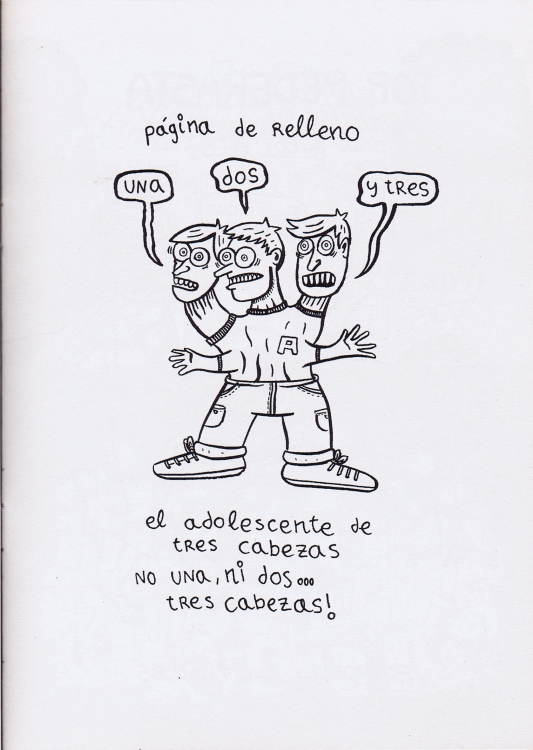 página de Relleno
UNA
dos
y tRes
A
el adolescente de
tRes cabezas
NO UNA, Ni dos...
tRes cabezas!